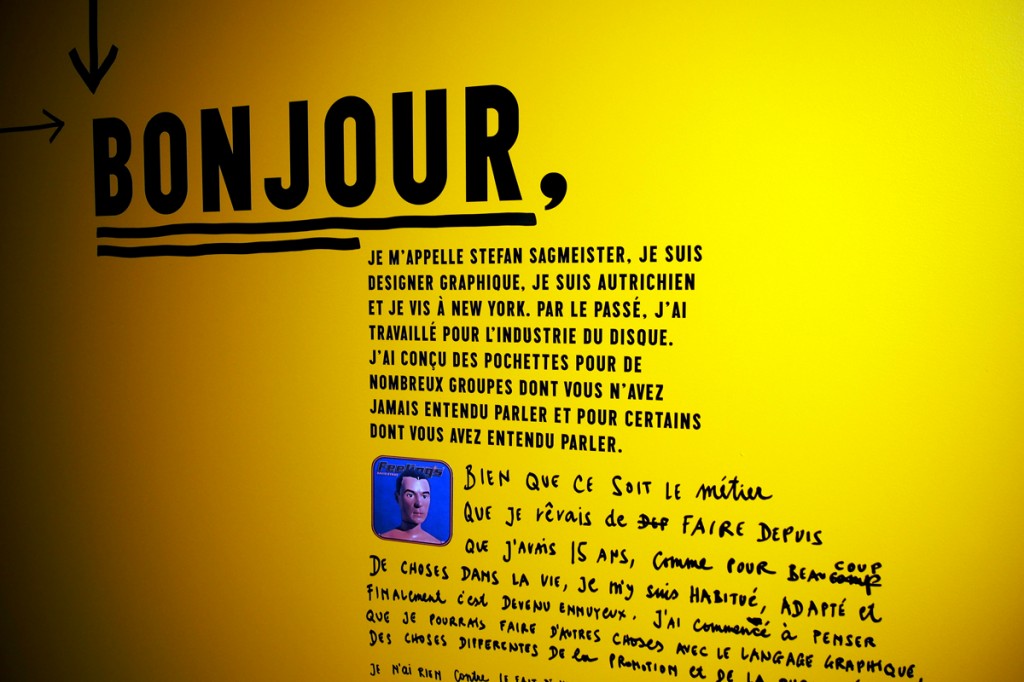 BONJOUR,
JE M'APPELLE STEFAN SAGMEISTER, JE SUIS
DESIGNER GRAPHIQUE, JE SUIS AUTRICHIEN
ET JE VIS À NEW YORK. PAR LE PASSÉ, J'AI
TRAVAILLÉ POUR L'INDUSTRIE DU DISQUE.
J'AI CONÇU DES POCHETTES POUR DE
NOMBREUX GROUPES DONT VOUS N'AVEZ
JAMAIS ENTENDU PARLER ET POUR CERTAINS
DONT VOUS AVEZ ENTENDU PARLER.
Feelings
BIEN QUE CE SOIT LE métier
QUE JE rêvais de FAIRE DEPUIS
QUE J'AVAIS 15 ANS, comme POUR BEAUCOUP
DE CHOSES DANS LA VIE, JE m'y suis HABITUÉ, ADAPTÉ et
FINALEMENT c'est DEVENU ENNUYEUX. J'AI commencé à PENSER
QUE JE POURRAIS FAIRE D'AUTRES CHOSES AVEC LE LANGAGE GRAPHIQUE,
DES CHOSES DIFFERENTES DE la PROMOTION et DE LA
JE N'AI RIEN contre LE FAIT